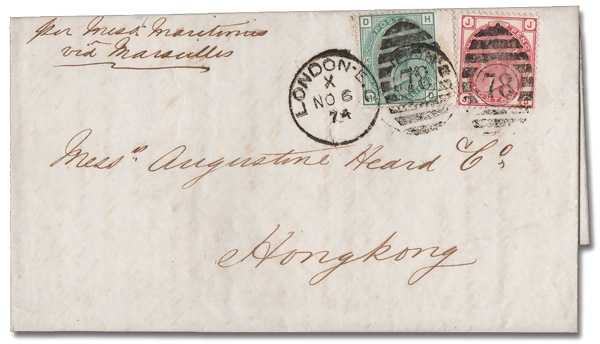 per Mess. Maritimes
viâ Marseilles
D H
POSTAGE
H D
J J
J J
LONDON-E.C
X
NO 6
74
78
78
Messrs Augustine Heard & Co,
Hongkong